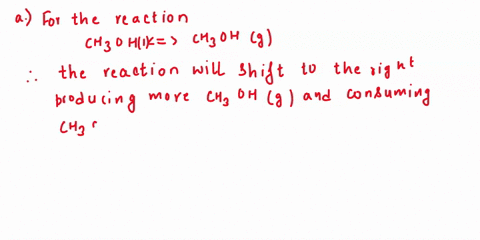 a.) For the reaction
CH3OH(l)<=> CH3OH (g)
∴ the reaction will shift to the right
producing more CH3OH (g) and consuming
CH3